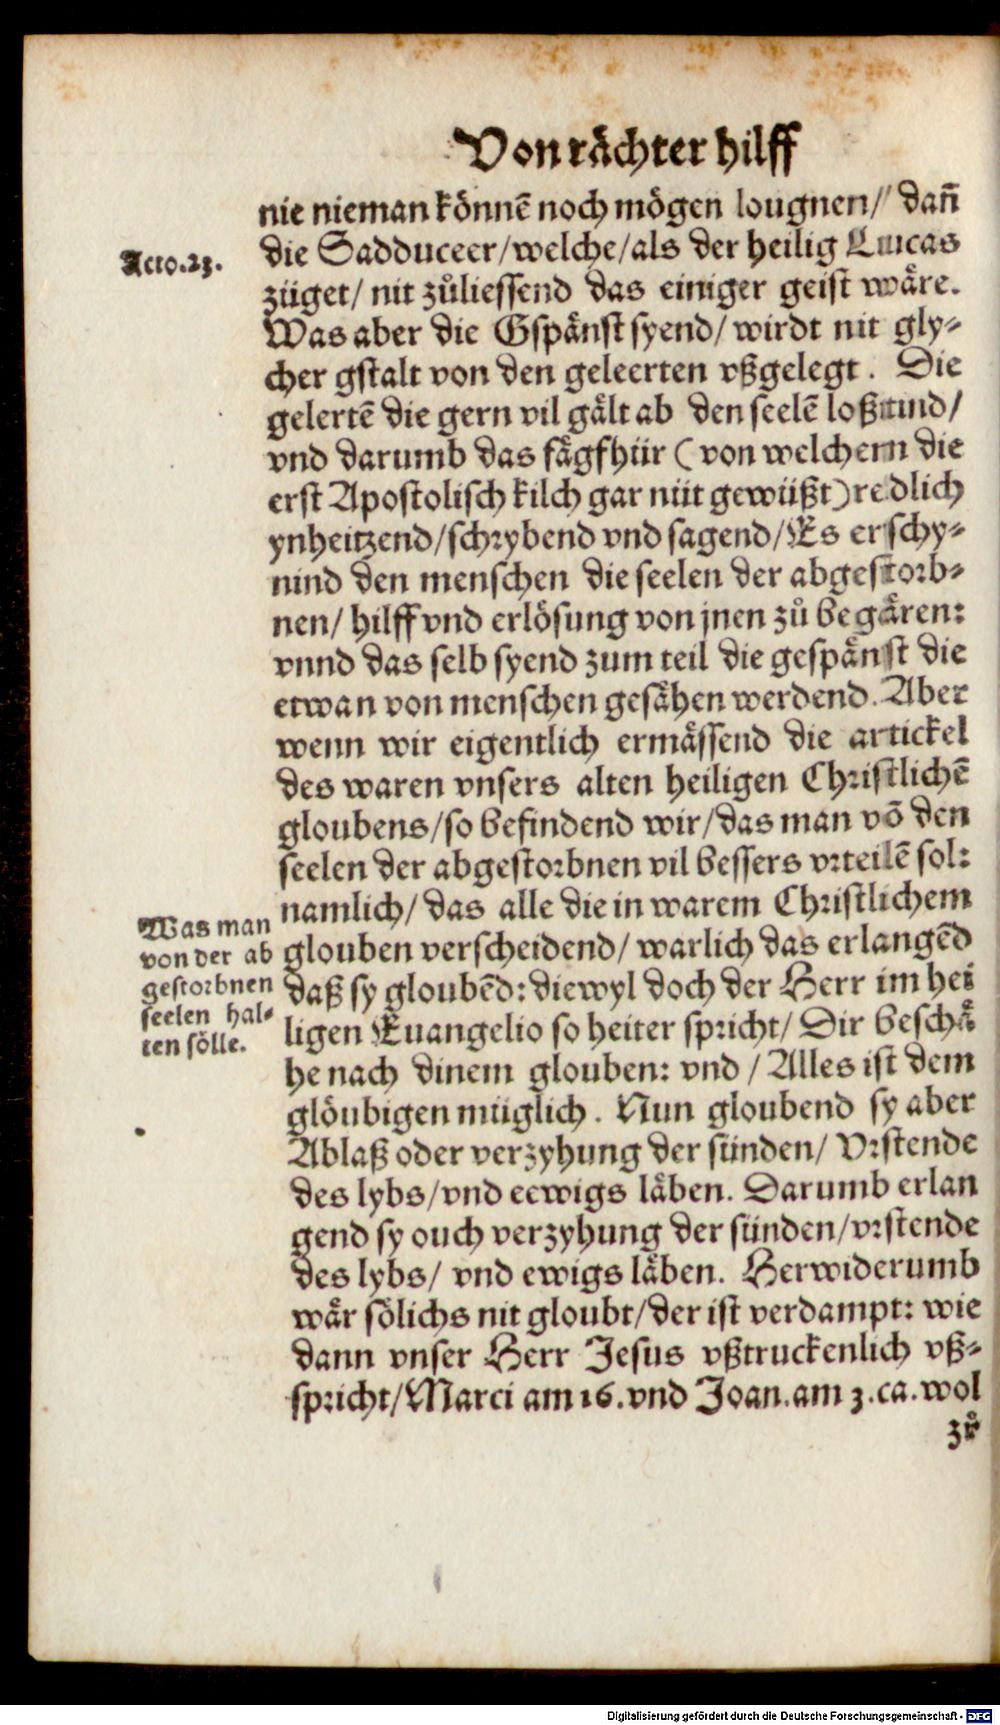 Von rächter hilff
nie nieman könnē noch mögen lougnen/ dañ
die Sadduceer/welche/als der heilig Lucas
Acto.23.
züget/ nit zůliessend das einiger geist wäre.
Was aber die Gspänst syend/ wirdt nit gly-
cher gstalt von den geleerten vßgelegt. Die
gelertē die gern vil gält ab den seelē loßtind/
vnd darumb das fägfhür (von welchem die
erst Apostolisch kilch gar nüt gewüßt) redlich
ynheitzend/schrybend vnd sagend/Es erschy-
nind den menschen die seelen der abgestorb-
nen/ hilff vnd erlösung von jnen zů begären:
vnnd das selb syend zum teil die gespänst die
etwan von menschen gesähen werdend. Aber
wenn wir eigentlich ermässend die artickel
des waren vnsers alten heiligen Christlichē
gloubens/so befindend wir/das man vō den
seelen der abgestorbnen vil bessers vrteilē sol:
namlich/ das alle die in warem Christlichem
glouben verscheidend/ warlich das erlangēd
daß sy gloubēd: diewyl doch der Herr im hei
ligen Euangelio so heiter spricht/ Dir beschä
he nach dinem glouben: vnd / Alles ist dem
glöubigen müglich. Nun gloubend sy aber
Was man
von der ab
gestorbnen
seelen hal-
ten sölle.
Ablaß oder verzyhung der sünden/ Vrstende
des lybs/vnd eewigs läben. Darumb erlan
gend sy ouch verzyhung der sünden/vrstende
des lybs/ vnd ewigs läben. Herwiderumb
wär sölichs nit gloubt/der ist verdampt: wie
dann vnser Herr Jesus vßtruckenlich vß-
spricht/Marci am 16. vnd Joan. am 3. ca. wol
zů
Digitalisierung gefördert durch die Deutsche Forschungsgemeinschaft - DFG